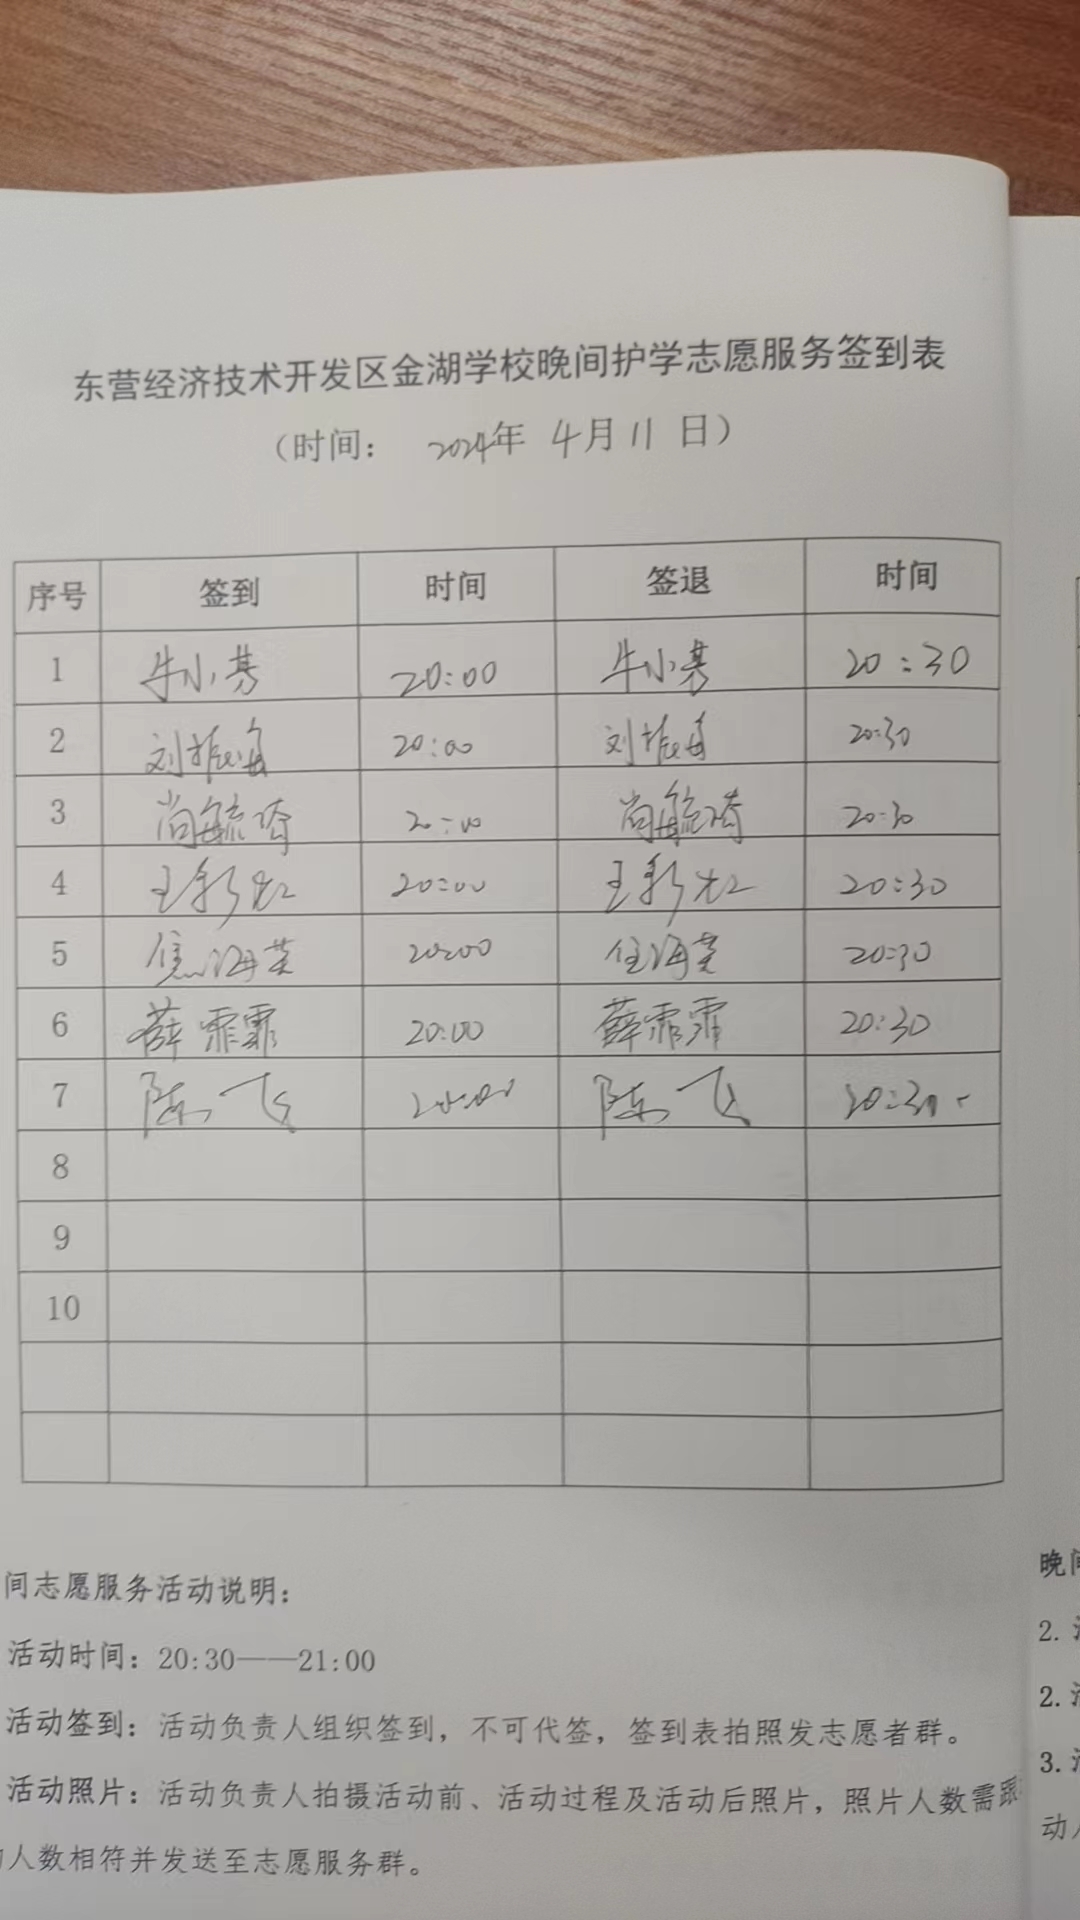 东营经济技术开发区金湖学校晚间护学志愿服务签到表
（时间： 2024年 4月11日）
序号 签到 时间 签退 时间
1 牛小芳 20:00 牛小芳 20:30
2 刘振海 20:00 刘振海 20:30
3 尚毓琦 20:00 尚毓琦 20:30
4 王彩虹 20:00 王彩虹 20:30
5 焦海英 20:00 焦海英 20:30
6 薛霏霏 20:00 薛霏霏 20:30
7 陈飞 20:00 陈飞 20:30
8
9
10
间志愿服务活动说明：
活动时间：20:30——21:00
活动签到：活动负责人组织签到，不可代签，签到表拍照发志愿者群。
活动照片：活动负责人拍摄活动前、活动过程及活动后照片，照片人数需跟
人数相符并发送至志愿服务群。
晚间
2.
2.
3.
动